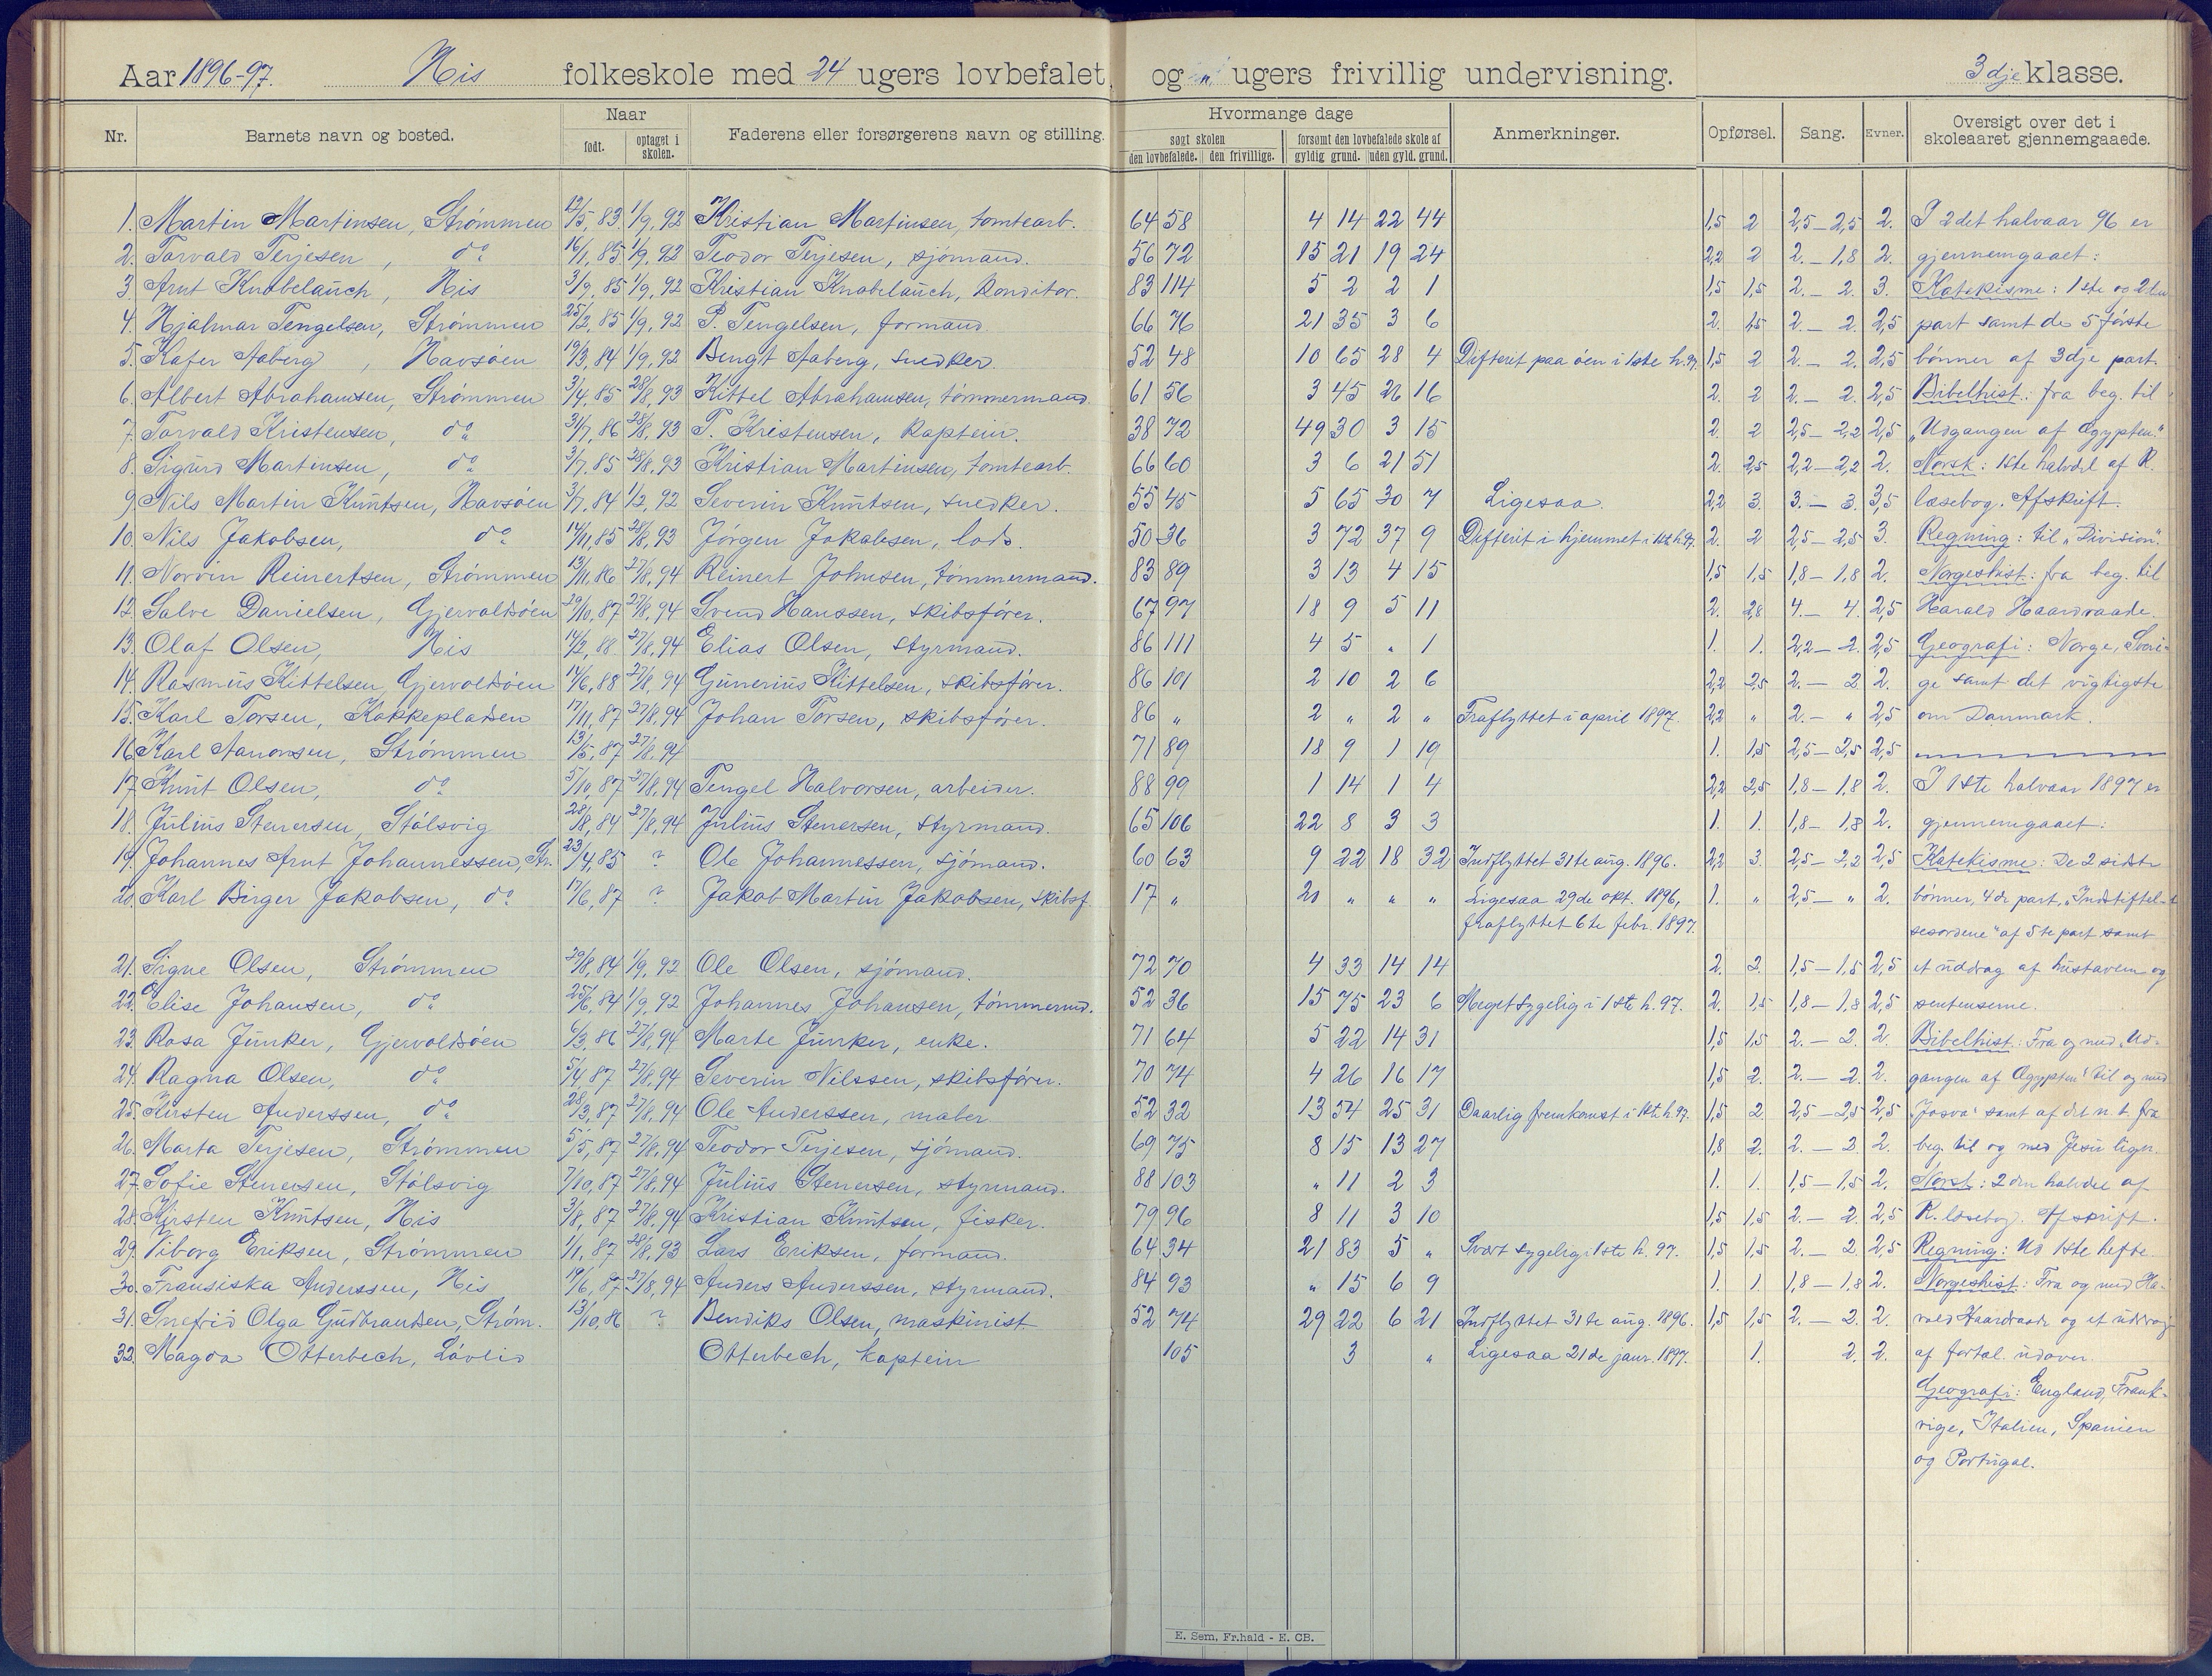 Aar 1896-97. His folkeskole med 24 ugers lovbefalet og ugers frivillig undervisning. 3dje klasse.
Nr. Barnets navn og bosted. Naar født. optaget i skolen. Faderens eller forsørgerens navn og stilling. Hvormange dage søgt skolen den lovbefalede. den frivillige. forsømt den lovbefalede skole af gyldig grund. uden gyld. grund. Anmerkninger. Opførsel. Sang. Evner. Oversigt over det i skoleaaret gjennemgaaede.
1. Martin Martinsen, Strømmen 12/5, 83. 1/9, 92 Kristian Martinsen, tomtearb. 64 58 4 14 22 44 1,5 2 2,5 – 2,5 2. I 2det halvaar 96 er
2. Torvald Terjesen, do 16/1, 85 1/9, 92 Teodor Terjesen, sjømand. 56 72 15 21 19 24 2,2 2 2. – 1,8 2. gjennemgaaet:
3. Arnt Knabelauch, His 3/9, 85 1/9, 92 Kristian Knabelauch, konditor. 83 114 5 2 2 1 1,5 1,5 2. – 2. 3. Katekisme: 1ste og 2den
4. Hjalmar Tengelsen, Strømmen 25/2, 85 1/9, 92 P. Tengelsen, formand 66 76 21 35 3 6 2. 1,5 2. – 2. 2,5 part samt de 5 første
5. Kafer Aaberg, Havsøen 19/3, 84 1/9, 92 Bengt Aaberg, snedker. 52 48 10 65 28 4 Difterit paa øen i 1ste h. 97. 1,5 2 2. – 2. 2,5 bønner af 3dje part.
6. Albert Abrahamsen, Strømmen 3/4, 85 28/8, 93 Kittel Abrahamsen, tømmermand. 61 56 3 45 26 16 2. 2 2. – 2. 2,5 Bibelhist.: fra beg. til
7. Torvald Kristensen, do 31/7, 86 28/8, 93 T. Kristensen, kaptein. 38 72 49 30 3 15 2. 2 2,5 – 2,2 2,5 „Udgangen af Ægypten."
8. Sigurd Martinsen, do 3/7, 85 28/8, 93 Kristian Martinsen, tomtearb. 66 60 3 6 21 51 2. 2,5 2,2 – 2,2 2. Norsk: 1ste halvdel af R.
9. Nils Martin Knutsen, Havsøen 3/7, 84 1/2, 92 Severin Knutsen, snedker. 55 45 5 65 30 7 Ligesaa. 2,2 3. 3. – 3. 3,5 læsebog. Afskrift.
10. Nils Jakobsen, do 14/11, 85 28/8, 93 Jørgen Jakobsen, lods. 50 36 3 72 37 9 Difterit i hjemmet i 1ste h. 97. 2. 2 2,5 – 2,5 3. Regning: til „Division".
11. Norvin Reinertsen, Strømmen 13/11, 86 27/8, 94 Reinert Johnsen, tømmermand. 83 89 3 13 4 15 1,5 1,5 1,8 – 1,8 2. Norgeshist: fra beg. til
12. Salve Danielsen, Gjervoldsøen 29/10, 87 27/8, 94 Svend Hanssen, skibsfører. 67 97 18 9 5 11 2. 2,8 4. – 4. 2,5 Harald Haardraade.
13. Olaf Olsen, His 14/2, 88 27/8, 94 Elias Olsen, styrmand. 86 111 4 5 „ 1 1. 1. 2,2 – 2. 2,5 Geografi: Norge, Sveri-
14. Rasmus Kittelsen, Gjervoldsøen 14/6, 88 27/8, 94 Gunerius Kittelsen, skibsfører. 86 101 2 10 2 6 2,2 2,5 2. – 2 2. ge samt det vigtigste
15. Karl Torsen, Kokkepladsen 17/11, 87 27/8, 94 Johan Torsen, skibsfører. 86 „ 2 „ 2 „ Fraflyttet i april 1897. 2,2 „ 2. – „ 2,5 om Danmark.
16. Karl Aanonsen, Strømmen 13/5, 87 27/8, 94 71 89 18 9 1 19 1. 1,5 2,5 – 2,5 2,5
17. Knut Olsen, do 5/10, 87 27/8, 94 Tengel Halvorsen, arbeider. 88 99 1 14 1 4 2,2 2,5 1,8 – 1,8 2. I 1ste halvaar 1897 er
18. Julius Stenersen, Stølsvig 28/8, 84 27/8, 94 Julius Stenersen, styrmand. 65 106 22 8 3 3 1. 1. 1,8 – 1,8 2. gjennemgaaet:
19. Johannes Arnt Johannessen, Str. 23/4, 85 ? Ole Johannessen, sjømand. 60 63 9 22 18 32 Indflyttet 31te aug. 1896. 2,2 3. 2,5 – 2,2 2,5 Katekisme: De 2 sidste
20. Karl Birger Jakobsen, do 17/6, 87 ? Jakob Martin Jakobsen, skibsf. 17 „ 20 „ „ „ Ligesaa 29de okt. 1896, 1. „ 2,5 – „ 2. bønner, 4de part, „Indstiftel-
fraflyttet 6te febr. 1897. sesordene" af 5te part samt
21. Signe Olsen, Strømmen 29/8, 84 1/9, 92 Ole Olsen, sjømand. 72 70 4 33 14 14 2. 2. 1,5 – 1,5 2,5 et uddrag af hustavlen og
22. Elise Johansen, do 25/6, 84 1/9, 92 Johannes Johansen, tømmermd. 52 36 15 75 23 6 Meget sygelig i 1ste h. 97. 2. 1,5 1,8 – 1,8 2,5 sentenserne.
23. Rosa Junker, Gjervoldsøen 6/3, 86 27/8, 94 Marte Junker, enke. 71 64 5 22 14 31 1,5 1,5 2. – 2. 2. Bibelhist: Fra og med „Ud-
24. Ragna Olsen, do 5/4, 87 27/8, 94 Severin Nilssen, skibsfører. 70 74 4 26 16 17 1,5 2. 2. – 2. 2. gangen af Ægypten" til og med
25. Kirsten Anderssen, do 28/3, 87 27/8, 94 Ole Anderssen, maler 52 32 13 54 25 31 Daarlig fremkomst i 1ste h. 97. 1,5 2. 2,5 – 2,5 2,5 „Josva" samt af det n. t. fra
26. Marta Terjesen, Strømmen 5/5, 87 27/8, 94 Teodor Terjesen, sjømand. 69 75 8 15 13 27 1,8 2. 2. – 2. 2. beg. til og med Jesu lign.
27. Sofie Stenersen, Stølsvig 7/10, 87 27/8, 94 Julius Stenersen, styrmand. 88 103 „ 11 2 3 1. 1. 1,5 – 1,5 2. Norsk: 2den halvdel af
28. Kirsten Knutsen, His 3/8, 87 27/8, 94 Kristian Knutsen, fisker. 79 96 8 11 3 10 1,5 1,5 2. – 2. 2,5 R. læsebog. Afskrift.
29. Viborg Eriksen, Strømmen 1/11, 87 28/8, 93 Lars Eriksen, formand. 64 34 21 83 5 „ Svært sygelig i 1ste h. 97. 1,5 1,5 2. – 2. 2,5 Regning: Ud 1ste hefte.
30. Fransiska Anderssen, His 19/6, 87 27/8, 94 Anders Anderssen, styrmand. 84 93 „ 15 6 9 1. 1. 1,8 – 1,8 2. Norgeshist: Fra og med Ha-
31. Snefrid Olga Gudbrandsen, Strøm. 13/10, 86 ? Bendiks Olsen, maskinist 52 74 29 22 6 21 Indflyttet 31te aug. 1896. 1,5 1,5 2. – 2. 2. rald Haardraade og et uddrag
32. Magda Otterbech, Løvlid Otterbech, kaptein 105 3 „ Ligesaa 21de janr. 1897. 1. 2. 2. af fortæl. udover.
Geografi: England, Frank-
rige, Italien, Spanien
og Portugal.
E. Sem, Fr.hald - E. CB.